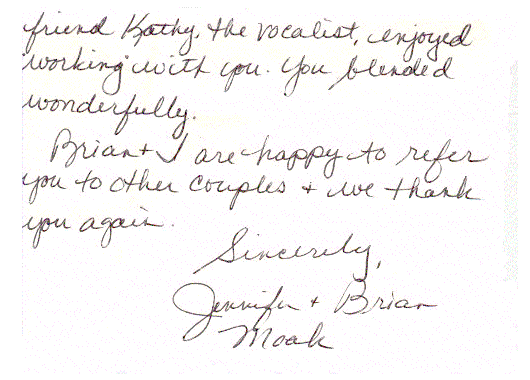 friend Kathy, the vocalist, enjoyed
working with you. You blended
wonderfully.
Brian + I are happy to refer
you to other couples + we thank
you again.
Sincerely,
Jennifer + Brian
Moak